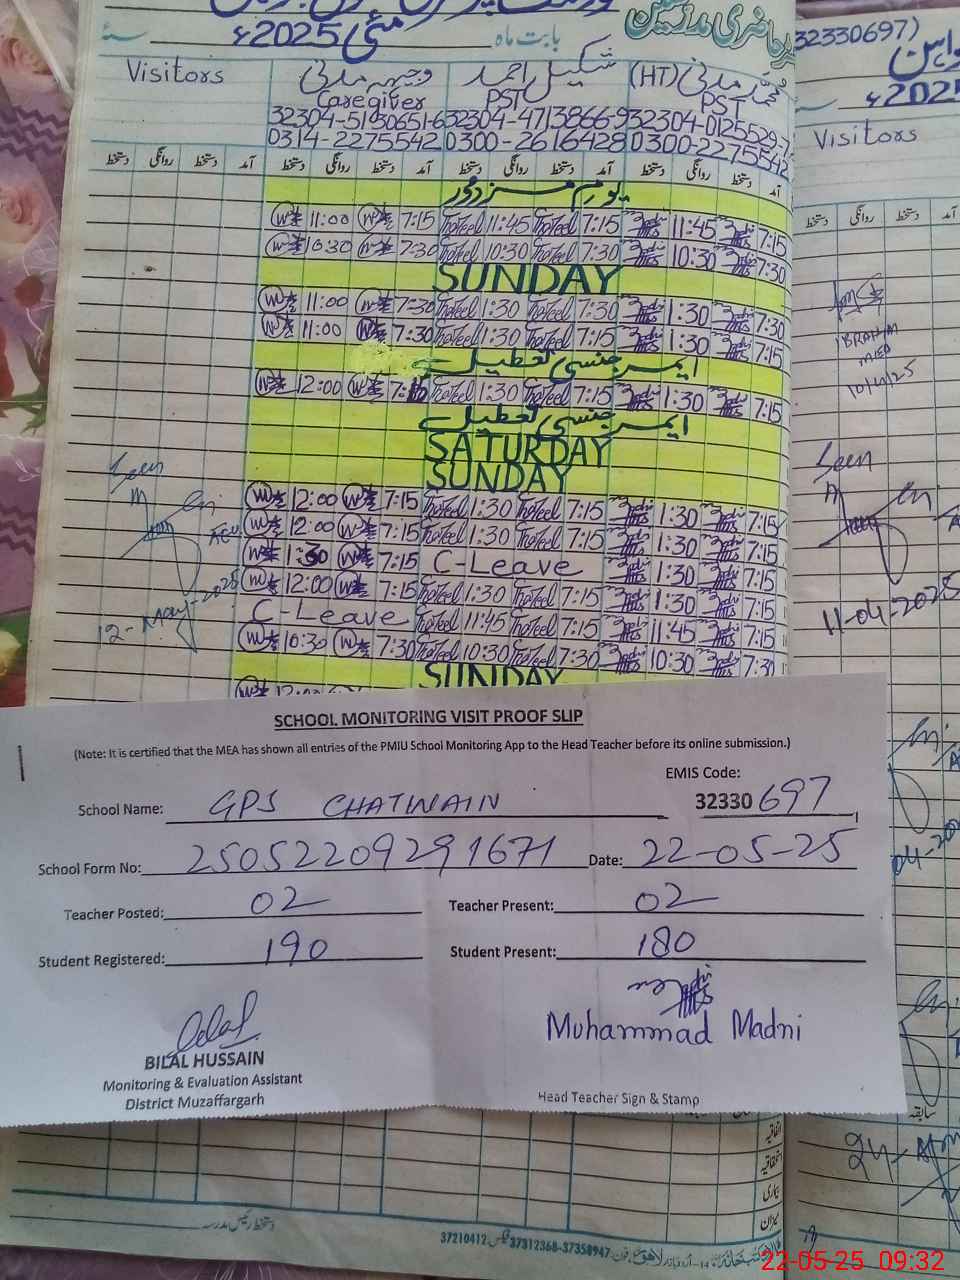 حاضری مدرسین
بابت ماہ مئی 2025ء
Visitors
وجیہہ مدنی
Caregiver
32304-5130651-6
0314-2275542
شکیل احمد
PST
32304-4713866-9
0300-2616428
محمد مدنی (HT)
PST
32304-0125529-7
0300-2275542
آمد دستخط روانگی دستخط آمد دستخط روانگی دستخط آمد دستخط روانگی دستخط
یوم مزدور
11:00 7:15 11:45 7:15 11:45 7:15
10:30 7:30 10:30 7:30 10:30 7:30
SUNDAY
11:00 7:30 1:30 7:30 1:30 7:30
11:00 7:30 1:30 7:15 1:30 7:15
ایمرجنسی تعطیل
12:00 7:15 1:30 7:15 1:30 7:15
ایمرجنسی تعطیل
SATURDAY
SUNDAY
12:00 7:15 1:30 7:15 1:30 7:15
12:00 7:15 1:30 7:15 1:30 7:15
1:30 7:15 C-Leave 1:30 7:15
12:00 7:15 1:30 7:15 1:30 7:15
C-Leave 11:45 7:15 11:45 7:15
10:30 7:30 10:30 7:30 10:30 7:30
SUNDAY
Seen
AEO
12-May-2025
32330697)
2025
Visitors
دستخط روانگی دستخط آمد
IBRAHIM
MEO
Seen
11-04-2025
04-20
SCHOOL MONITORING VISIT PROOF SLIP
(Note: It is certified that the MEA has shown all entries of the PMIU School Monitoring App to the Head Teacher before its online submission.)
EMIS Code:
School Name: GPS CHATWAIN 32330697
School Form No: 25052209291671 Date: 22-05-25
Teacher Posted: 02 Teacher Present: 02
Student Registered: 190 Student Present: 180
Muhammad Madni
BILAL HUSSAIN
Monitoring & Evaluation Assistant
District Muzaffargarh
Head Teacher Sign & Stamp
سابقہ
اتفاقیہ
استحقاقیہ
بیماری
میزان
دستخط رئیس مدرسہ
37210412 37312368-37358947
22-05-25 09:32